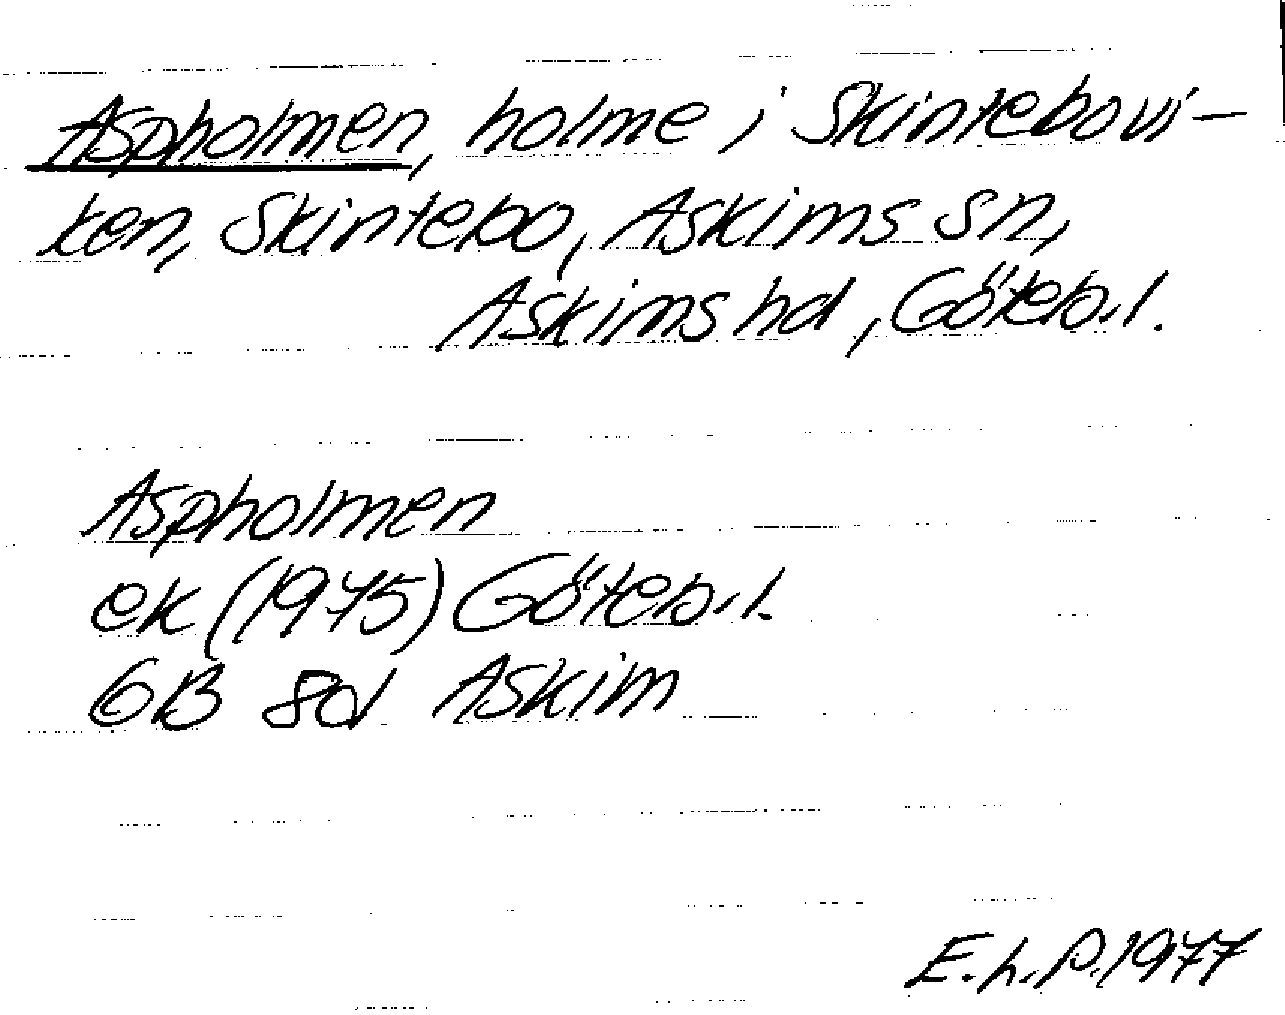 Aspholmen, holme i Skintebovi-
ken, Skintebo, Askims sn,
Askims hd, Göteb.l.
Aspholmen
ek (1975) Göteb.l.
6B 8d Askim
E.h.P.1977